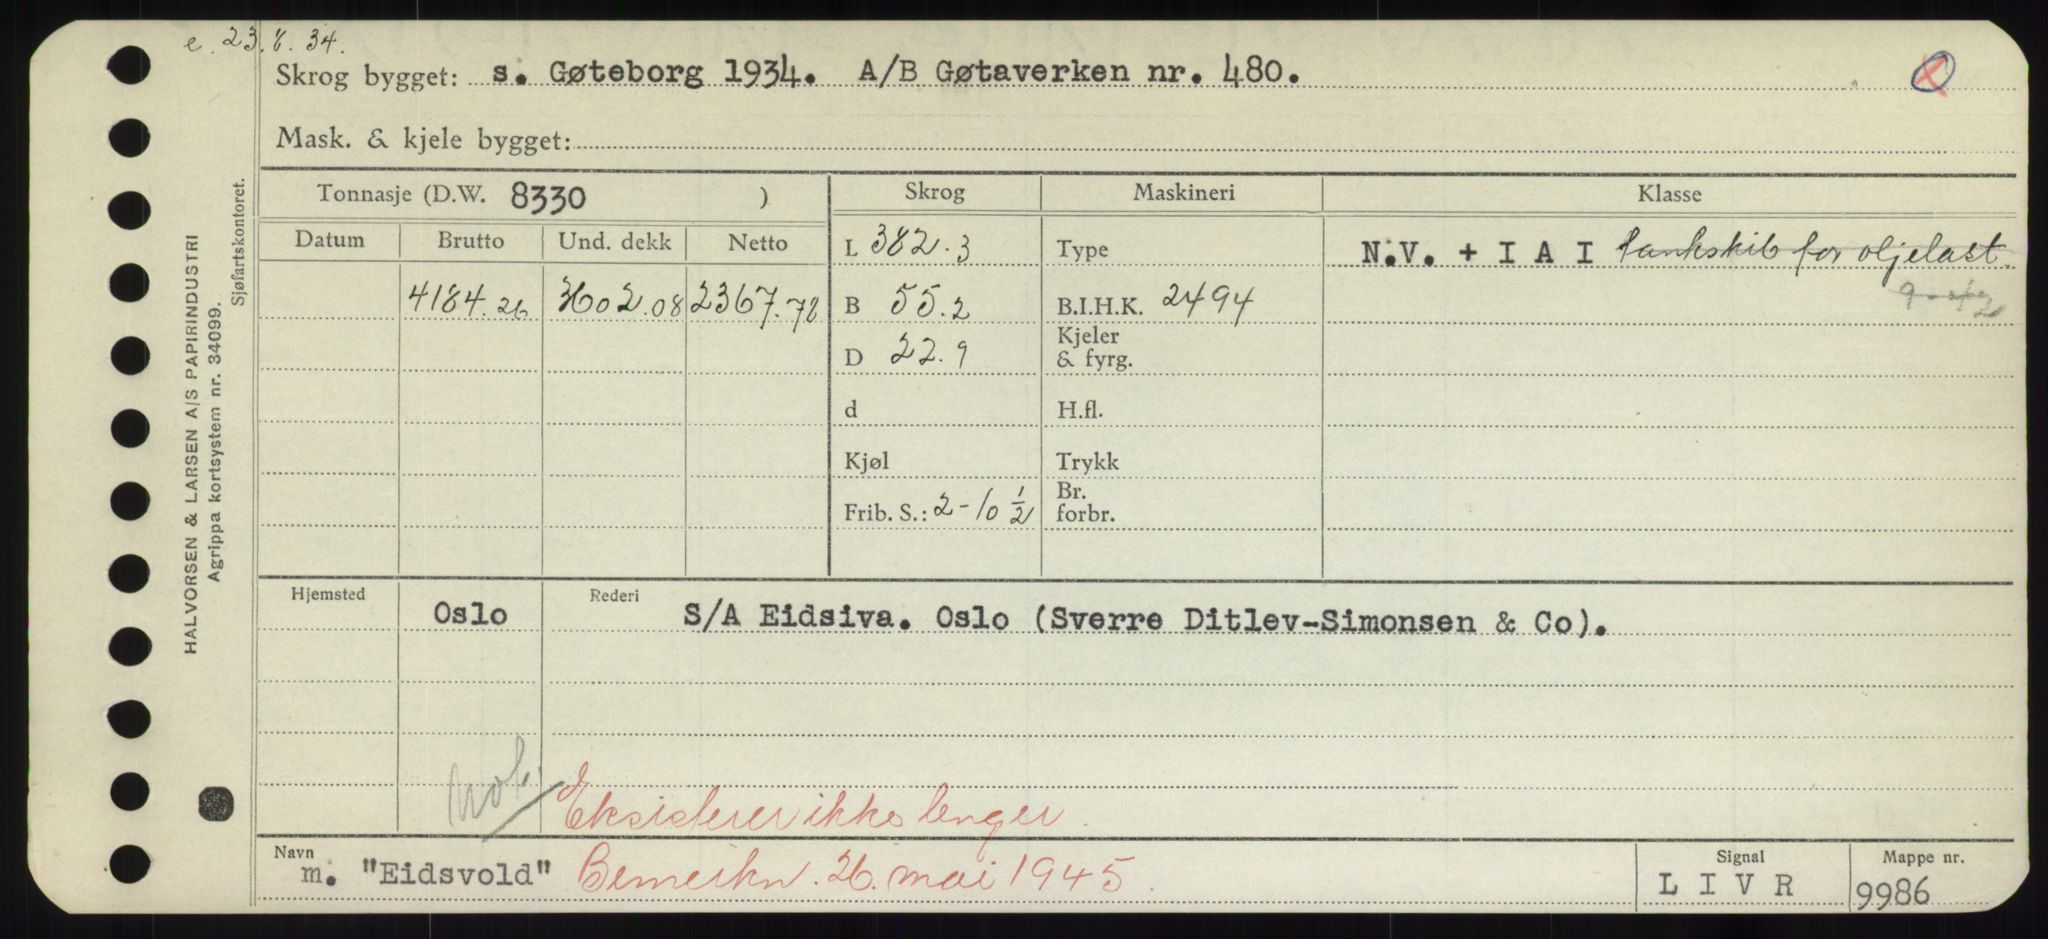 e. 23.8.34.
Skrog bygget: s. Gøteborg 1934. A/B Gøtaverken nr. 480.
Mask. & kjele bygget:
Tonnasje (D.W. 8330 ) Skrog Maskineri Klasse
Datum Brutto Und. dekk Netto L 382.3 Type N.V. + I A I tankskib for oljelast
9-42
4184.26 3602.08 2367.78 B 55.2 B.I.H.K. 2494
D 22.9 Kjeler
& fyrg.
d H.fl.
Kjøl Trykk
Frib. S.: 2-10 1/2 Br.
forbr.
Hjemsted Oslo Rederi S/A Eidsiva. Oslo (Sverre Ditlev-Simonsen & Co).
Eksisterer ikke lenger.
Navn m. "Eidsvold" Bemerkn. 26. mai 1945. Signal L I V R Mappe nr. 9986
HALVORSEN & LARSEN A/S PAPIRINDUSTRI
Agrippa kortsystem nr. 34099.
Sjøfartskontoret.